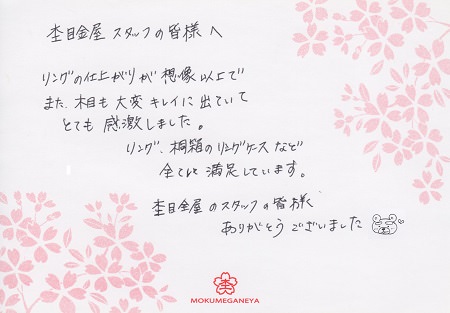 杢目金屋 スタッフの皆様へ
リングの仕上がりが想像以上で
また、木目も大変キレイに出ていて
とても感激しました。
リング、桐箱のリングケースなど
全てに満足しています。
杢目金屋のスタッフの皆様
ありがとうございました
杢
MOKUMEGANEYA